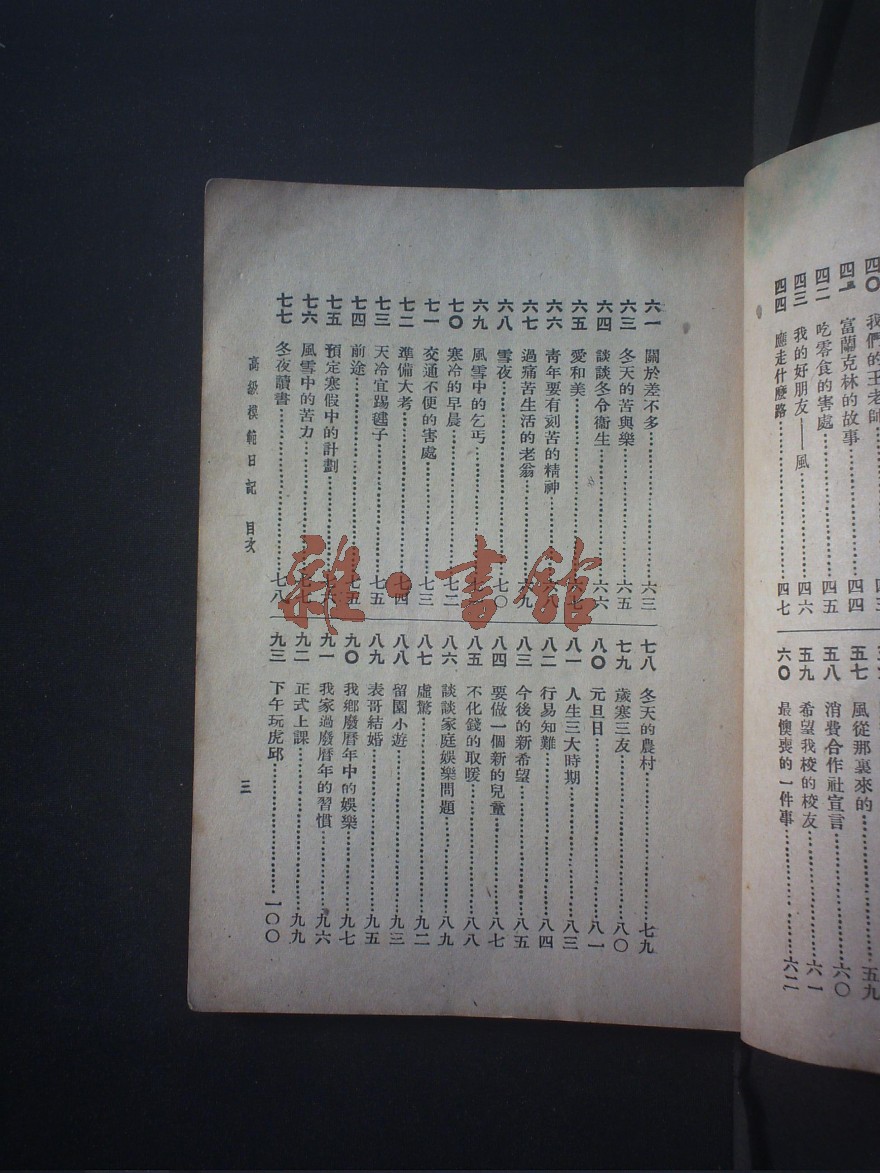 四〇 我們的王老師
四一 富蘭克林的故事……四四
四二 吃零食的害處……四五
四三 我的好朋友——風……四六
四四 應走什麼路……四七
五七 風從那裏來的……五九
五八 消費合作社宣言……六〇
五九 希望我校的校友……六一
六〇 最懊喪的一件事……六二
六一 關於差不多……六三
六三 冬天的苦與樂……六五
六四 談談冬令衞生……六六
六五 愛和美……六七
六六 靑年要有刻苦的精神……六八
六七 過痛苦生活的老翁……六九
六八 雪夜……七〇
六九 風雪中的乞丐……七一
七〇 寒冷的早晨……七二
七一 交通不便的害處……七三
七二 準備大考……七四
七三 天冷宜踢毽子……七五
七四 前途……七五
七五 預定寒假中的計劃……七六
七六 風雪中的苦力……七七
七七 冬夜讀書……七八
七八 冬天的農村……七九
七九 歲寒三友……八〇
八〇 元旦日……八一
八一 人生三大時期……八三
八二 行易知難……八四
八三 今後的新希望……八五
八四 要做一個新的兒童……八七
八五 不化錢的取暖……八八
八六 談談家庭娛樂問題……八九
八七 虛驚……九二
八八 留園小遊……九三
八九 表哥結婚……九五
九〇 我鄉廢曆年中的娛樂……九七
九一 我家過廢曆年的習慣……九六
九二 正式上課……九九
九三 下午玩虎邱……一〇〇
高級模範日記 目次
三
雜·書館